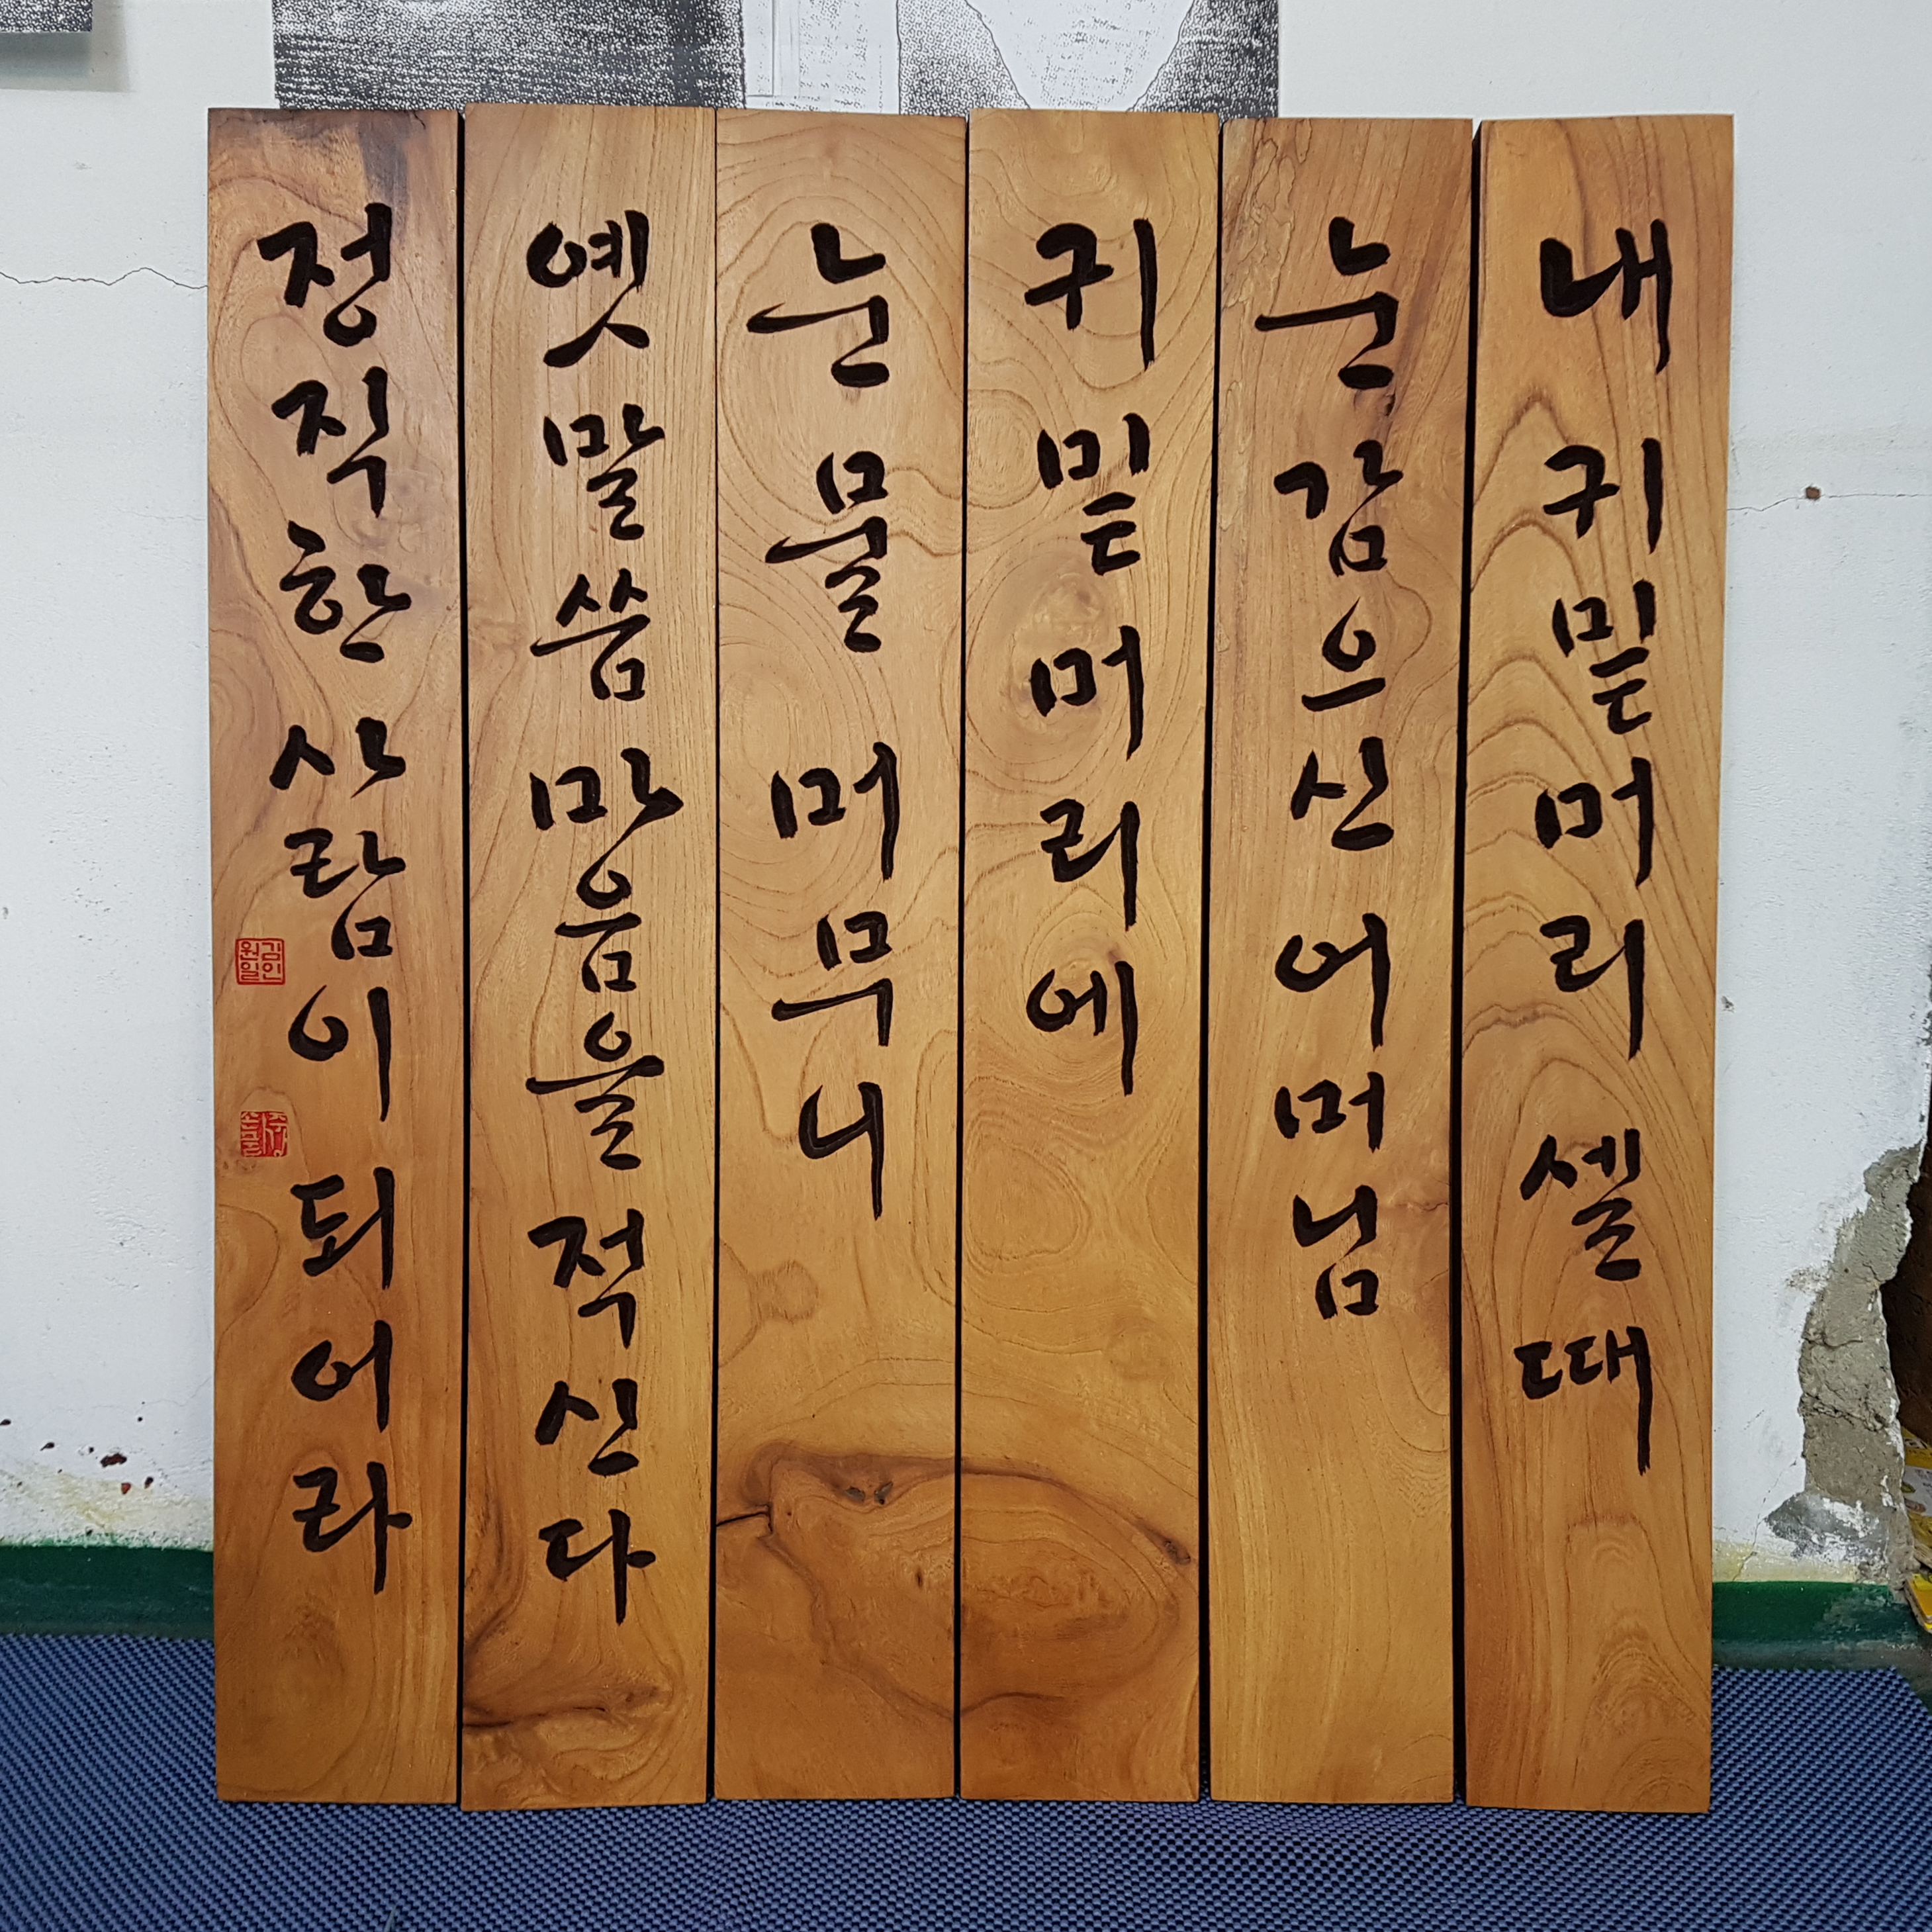 내 귀밑머리 셀 때
눈 감으신 어머님
귀밑머리에
눈물 머무니
옛 말씀 마음을 적신다
정직한 사람이 되어라
김인
원일